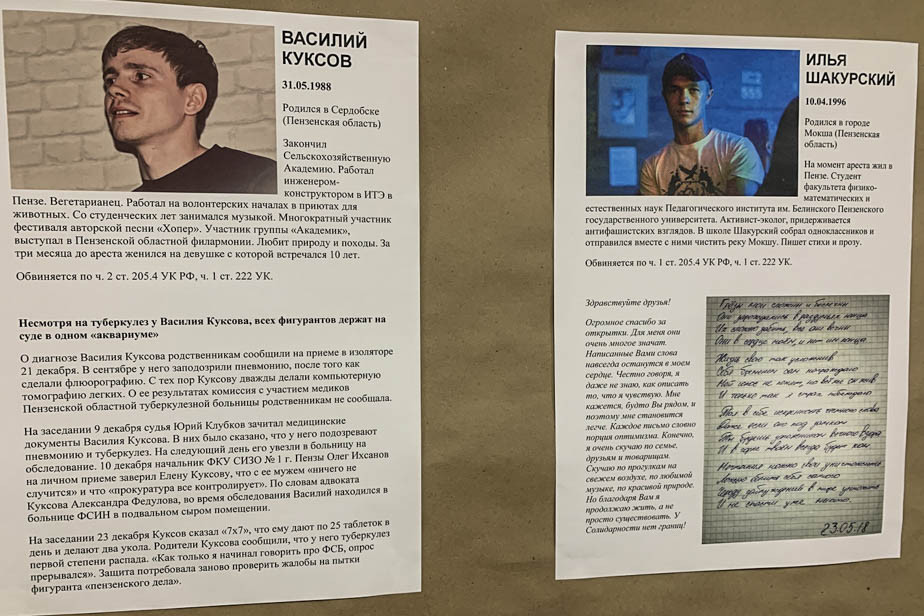 ВАСИЛИЙ
КУКСОВ
31.05.1988
Родился в Сердобске
(Пензенская область)
Закончил
Сельскохозяйственную
Академию. Работал
инженером-
конструктором в ИТЭ в
Пензе. Вегетарианец. Работал на волонтерских началах в приютах для
животных. Со студенческих лет занимался музыкой. Многократный участник
фестиваля авторской песни «Хопер». Участник группы «Академик»,
выступал в Пензенской областной филармонии. Любит природу и походы. За
три месяца до ареста женился на девушке с которой встречался 10 лет.
Обвиняется по ч. 2 ст. 205.4 УК РФ, ч. 1 ст. 222 УК.
Несмотря на туберкулез у Василия Куксова, всех фигурантов держат на
суде в одном «аквариуме»
О диагнозе Василия Куксова родственникам сообщили на приеме в изоляторе
21 декабря. В сентябре у него заподозрили пневмонию, после того как
сделали флюорографию. С тех пор Куксову дважды делали компьютерную
томографию легких. О ее результатах комиссия с участием медиков
Пензенской областной туберкулезной больницы родственникам не сообщала.
На заседании 9 декабря судья Юрий Клубков зачитал медицинские
документы Василия Куксова. В них было сказано, что у него подозревают
пневмонию и туберкулез. На следующий день его увезли в больницу на
обследование. 10 декабря начальник ФКУ СИЗО № 1 г. Пензы Олег Ихсанов
на личном приеме заверил Елену Куксову, что с ее мужем «ничего не
случится» и что «прокуратура все контролирует». По словам адвоката
Куксова Александра Федулова, во время обследования Василий находился в
больнице ФСИН в подвальном сыром помещении.
На заседании 23 декабря Куксов сказал «7х7», что ему дают по 25 таблеток в
день и делают два укола. Родители Куксова сообщили, что у него туберкулез
первой степени распада. «Как только я начинал говорить про ФСБ, опрос
прерывался». Защита потребовала заново проверить жалобы на пытки
фигуранта «пензенского дела».
ИЛЬЯ
ШАКУРСКИЙ
10.04.1996
Родился в городе
Мокша (Пензенская
область)
На момент ареста жил в
Пензе. Студент
факультета физико-
математических и
естественных наук Педагогического института им. Белинского Пензенского
государственного университета. Активист-эколог, придерживается
антифашистских взглядов. В школе Шакурский собрал одноклассников и
отправился вместе с ними чистить реку Мокшу. Пишет стихи и прозу.
Обвиняется по ч. 1 ст. 205.4 УК РФ, ч. 1 ст. 222 УК.
Здравствуйте друзья!
Огромное спасибо за
открытки. Для меня они
очень многое значат.
Написанные Вами слова
навсегда останутся в моем
сердце. Честно говоря, я
даже не знаю, как описать
то, что я чувствую. Мне
кажется, будто Вы рядом, и
поэтому мне становится
легче. Каждое письмо словно
порция оптимизма. Конечно,
я очень скучаю по семье,
друзьям и товарищам.
Скучаю по прогулкам на
свежем воздухе, по любимой
музыке, по красивой природе.
Но благодаря Вам я
продолжаю жить, а не
просто существовать. У
Солидарности нет границ!
23.05.18